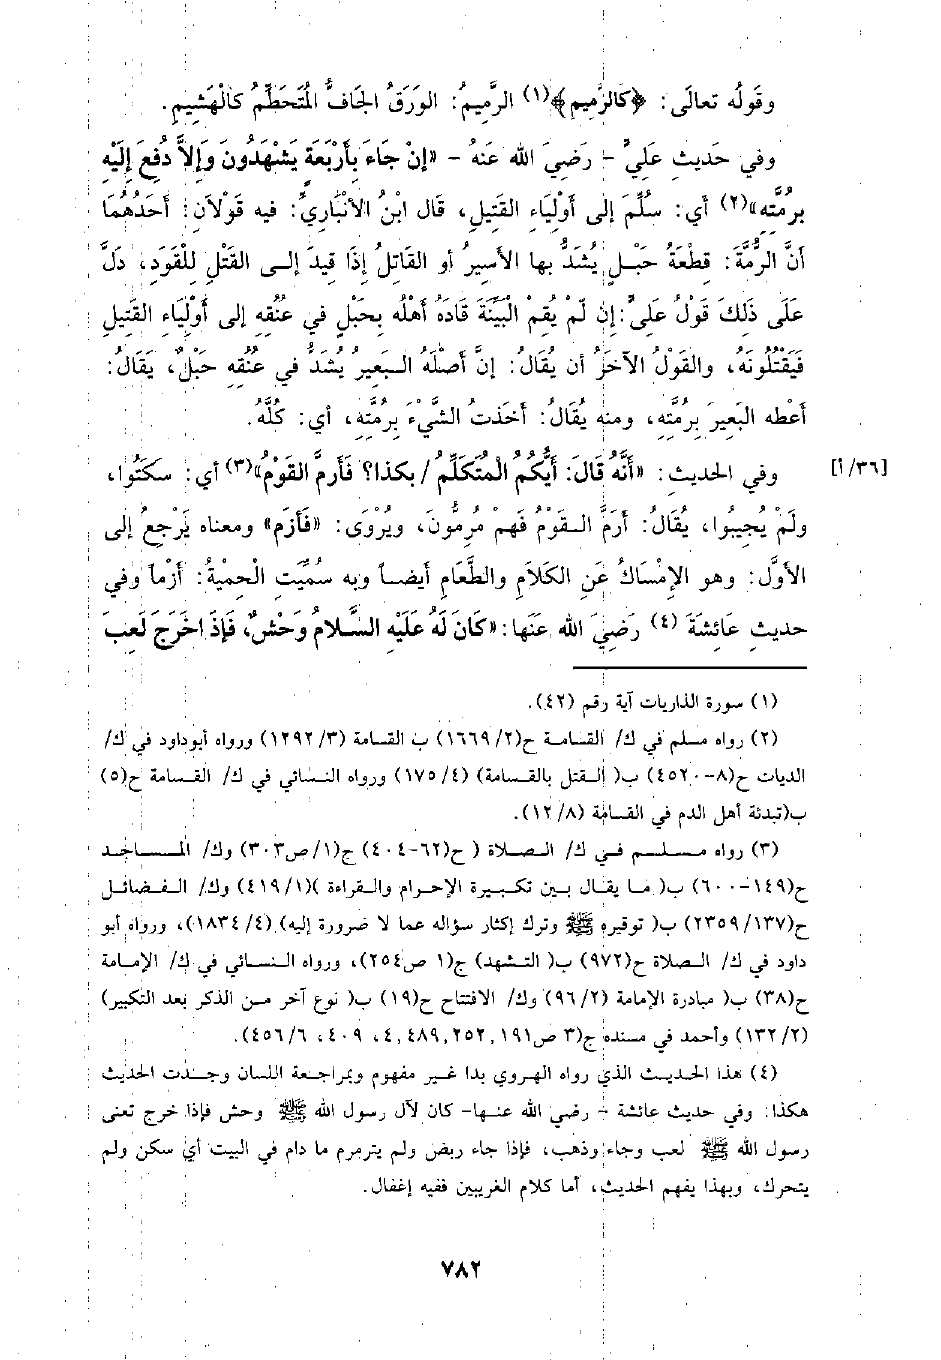 وقَولُه تعالَى: ﴿كَالرَّمِيمِ﴾(١) الرَّمِيمُ: الوَرَقُ الجَافُّ المُتَحَطِّمُ كَالْهَشِيمِ.
وفي حَديثِ عَليٍّ – رَضِيَ الله عَنهُ – «إنْ جَاءَ بأَرْبَعَةٍ يَشْهَدُونَ وَإلاَّ دُفِعَ إلَيْه
بِرُمَّتِه»(٢) أي: سُلِّمَ إلى أَوْلِيَاءِ القَتِيلِ، قَال ابنُ الأنْبَارِيِّ: فيه قَولاَنِ: أَحَدُهُمَا
أنَّ الرُّمَّةَ: قِطْعَةُ حَبْلٍ يُشَدُّ بها الأسيرُ أو القَاتِلُ إذَا قِيدَ إلى القَتْلِ لِلْقَودِ، دَلَّ
عَلَى ذَلِكَ قَوْلُ عَليٍّ: إن لَمْ يُقِمْ الْبَيِّنَةَ قَادَهُ أَهْلُه بِحَبْلٍ في عُنُقِهِ إلى أَوْلِيَاءِ القَتِيلِ
فَيَقْتُلُونَهُ، والقَوْلُ الآخَرُ أن يُقَالُ: إنَّ أَصْلَهُ البَعِيرُ يُشَدُّ في عُنُقِهِ حَبْلٌ، يقَالُ:
أَعْطه البَعِيرَ بِرُمَّتِهِ، ومنه يُقَالُ: أَخَذتُ الشَّيْءَ بِرُمَّتِه، أي: كُلَّهُ.
وفي الحَديث: «أَنَّهُ قَالَ: أَيُّكُمُ الْمُتَكَلِّمُ / بكذا؟ فَأَرَمَّ القَوْمُ»(٣) أي: سَكَتُوا، [٣٦/أ]
ولَمْ يُجيبُوا، يقَالُ: أرَمَّ القَوْمُ فَهمْ مُرِمُّونَ، ويُرْوَى: «فَأَزَم» ومعناه يَرْجعُ إلى
الأوَّل: وهو الإمْسَاكُ عَنِ الكَلاَمِ والطَّعَامِ أيضاً وبه سُمِّيَت الْحِمْيةُ: أزْماً وفي
حديثِ عَائِشَةَ (٤) رَضِيَ الله عَنهَا: «كَانَ لَهُ عَلَيْهِ السَّلامُ وَحْشٌ، فَإذَ اخَرَجَ لَعِبَ
(١) سورة الذاريات آية رقم (٤٢).
(٢) رواه مسلم في ك/ القسامة ح(١٦٦٩/٢) ب القسامة (١٢٩٢/٣) ورواه أبوداود في ك/
الديات ح(٨-٤٥٢٠) ب( القتل بالقسامة) (١٧٥/٤) ورواه النسائي في ك/ القسامة ح(٥)
ب(تبدئة أهل الدم في القسامة (١٢/٨).
(٣) رواه مسلم في ك/ الصلاة ( ح(٦٢-٤٠٤) ج(١/ص٣٠٣) وك/ المساجد
ح(١٤٩-٦٠٠) ب( ما يقال بين تكبيرة الإحرام والقراءة )(٤١٩/١) وك/ الفضائل
ح(٢٣٥٩/١٣٧) ب( توقيره ﷺ وترك إكثار سؤاله عما لا ضرورة إليه) (١٨٣٤/٤)، ورواه أبو
داود في ك/ الصلاة ح(٩٧٢) ب( التشهد) ج(١ ص٢٥٤)، ورواه النسائي في ك/ الإمامة
ح(٣٨) ب( مبادرة الإمامة (٩٦/٢) وك/ الافتتاح ح(١٩) ب( نوع آخر من الذكر بعد التكبير)
(١٣٢/٢) وأحمد في مسنده ج(٣ ص١٩١,٢٥٢,٤٨٩,٤، ٤٠٩، ٤٥٦/٦).
(٤) هذا الحديث الذي رواه الهروي بدا غير مفهوم وبمراجعة اللسان وجدت الحديث
هكذا: وفي حديث عائشة – رضي الله عنها- كان لآل رسول الله ﷺ وحش فإذا خرج تعنى
رسول الله ﷺ لعب وجاء وذهب، فإذا جاء ربض ولم يترمرم ما دام في البيت أي سكن ولم
يتحرك، وبهذا يفهم الحديث، أما كلام الغريبين ففيه إغفال.
٧٨٢